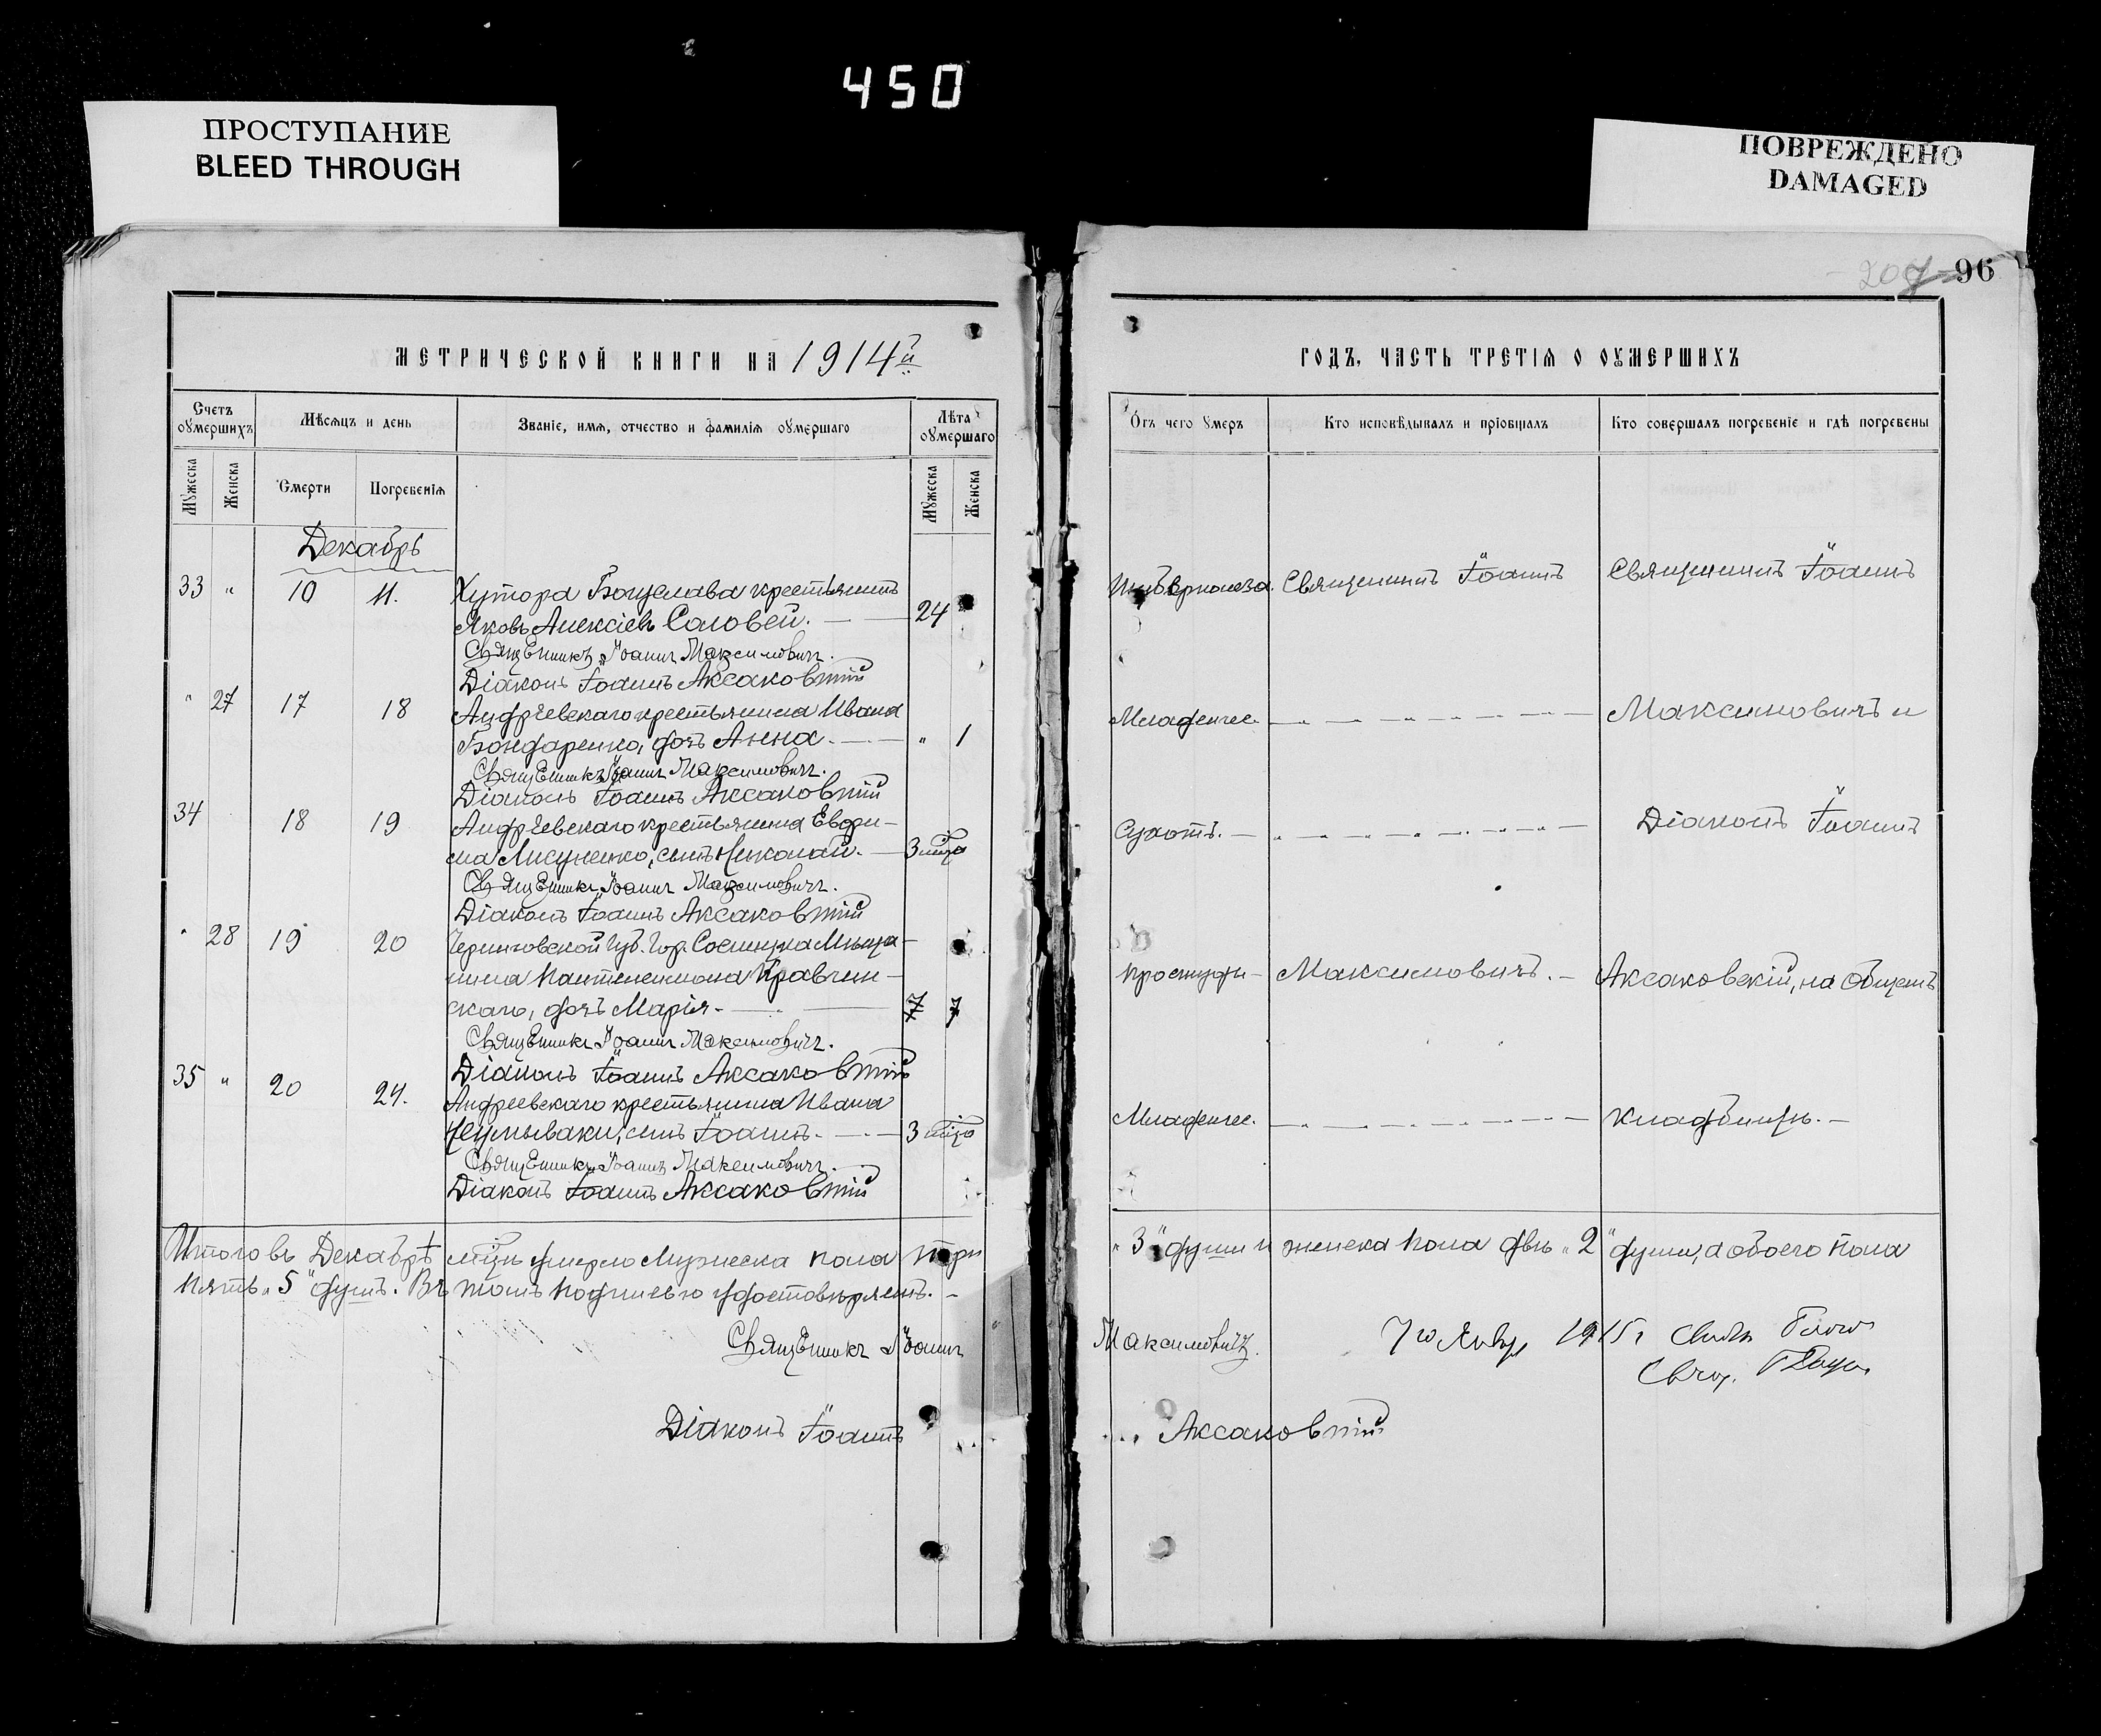 450
ПРОСТУПАНИЕ
BLEED THROUGH
ПОВРЕЖДЕНО
DAMAGED
96
МЕТРИЧЕСКОЙ КНИГИ НА 1914й
Счетъ оумершихъ
Мѣсяцъ и день
Званіе, имя, отчество и фамилія оумершаго
Лѣта оумершаго
Мужеска
Женска
Смерти
Погребенія
Мужеска
Женска
Декабрь
33 " 10 11. Хутора Богуслава крестьянинъ
Яковъ Алексіевъ Соловей. 24
Священникъ Іоаннъ Максимовичъ.
Діаконъ Іоаннъ Аксаковскій
" 27 17 18 Андрѣевскаго крестьянина Ивана
Бондаренко, дочь Анна. " 1
Священникъ Іоаннъ Максимовичъ.
Діаконъ Іоаннъ Аксаковскій
34 18 19 Андрѣевскаго крестьянина Евфи-
ма Лисуненко, сынъ Николай. 3 мѣс
Священникъ Іоаннъ Максимовичъ.
Діаконъ Іоаннъ Аксаковскій
" 28 19 20 Черниговской губ. гор. Сосницка Мѣща-
нина Пантелеимона Кравчин-
скаго, дочь Марія. 7 7
Священникъ Іоаннъ Максимовичъ.
Діаконъ Іоаннъ Аксаковскій
35 " 20 21. Андреевскаго крестьянина Ивана
сынъ Іоаннъ. 3 мѣс
Священникъ Іоаннъ Максимовичъ.
Діаконъ Іоаннъ Аксаковскій
Итого въ Декабрѣ мѣс. умерло Мужеска пола три
пять "5" душъ. Въ томъ подписью удостовѣряемъ.
Священникъ Іоаннъ
Діаконъ Іоаннъ
ГОДЪ, ЧАСТЬ ТРЕТІЯ О ОУМЕРШИХЪ
Отъ чего умеръ
Кто исповѣдывалъ и пріобщалъ
Кто совершалъ погребеніе и гдѣ погребены
Священникъ Іоаннъ Священникъ Іоаннъ
Младенчес. Максимовичъ и
Сухотъ. Діаконъ Іоаннъ
Простуды Максимовичъ. Аксаковскій, на общемъ
Младенчес. кладбищѣ.
"3" души и женска пола двѣ "2" души, а обоего пола
Максимовичъ. 7го Янв 1915г
Аксаковскій